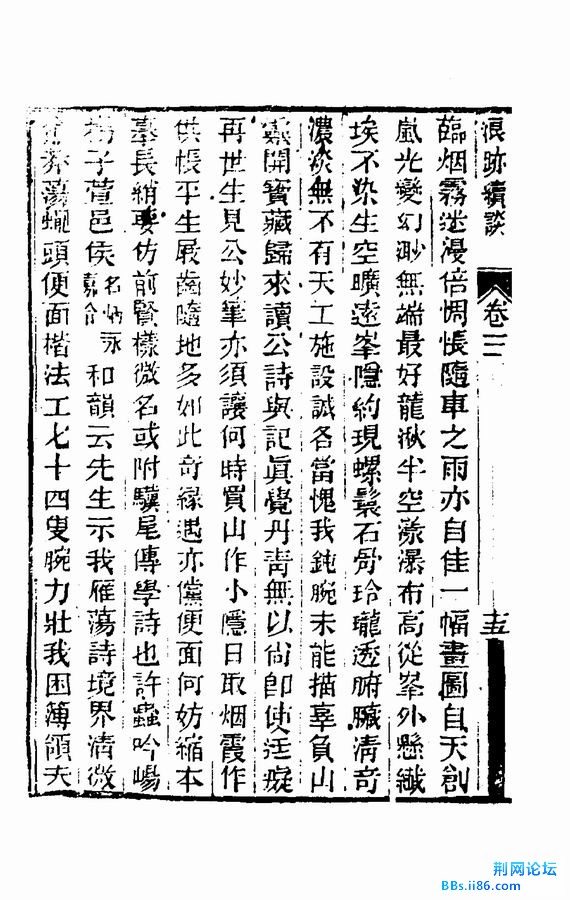 浪跡續談
卷三
十五
臨烟霧迷漫倍惆悵隨車之雨亦自佳一幅畫圖自天創
嵐光變幻渺無端最好龍湫半空漾瀑布高從峯外懸纖
埃不染生空曠遠峯隱約現螺鬟石骨玲瓏透腑臟清奇
濃淡無不有天工施設誠各當愧我鈍腕未能描辜負山
靈開寶藏歸來讀公詩與記眞覺丹靑無以尚卽使迂癡
再世生見公妙筆亦須讓何時買山作小隱日取烟霞作
供帳平生屐齒隨地多如此奇緣遇亦儻便面何妨縮本
摹長綃要仿前賢樣微名或附驥尾傳學詩也許蟲吟唱
楊子萱邑侯名炳嘉詠和韻云先生示我雁蕩詩境界清微
莽蕩蠅頭便面楷法工七十四叟腕力壯我困簿領夫
荆网论坛
BBs.ii86.com